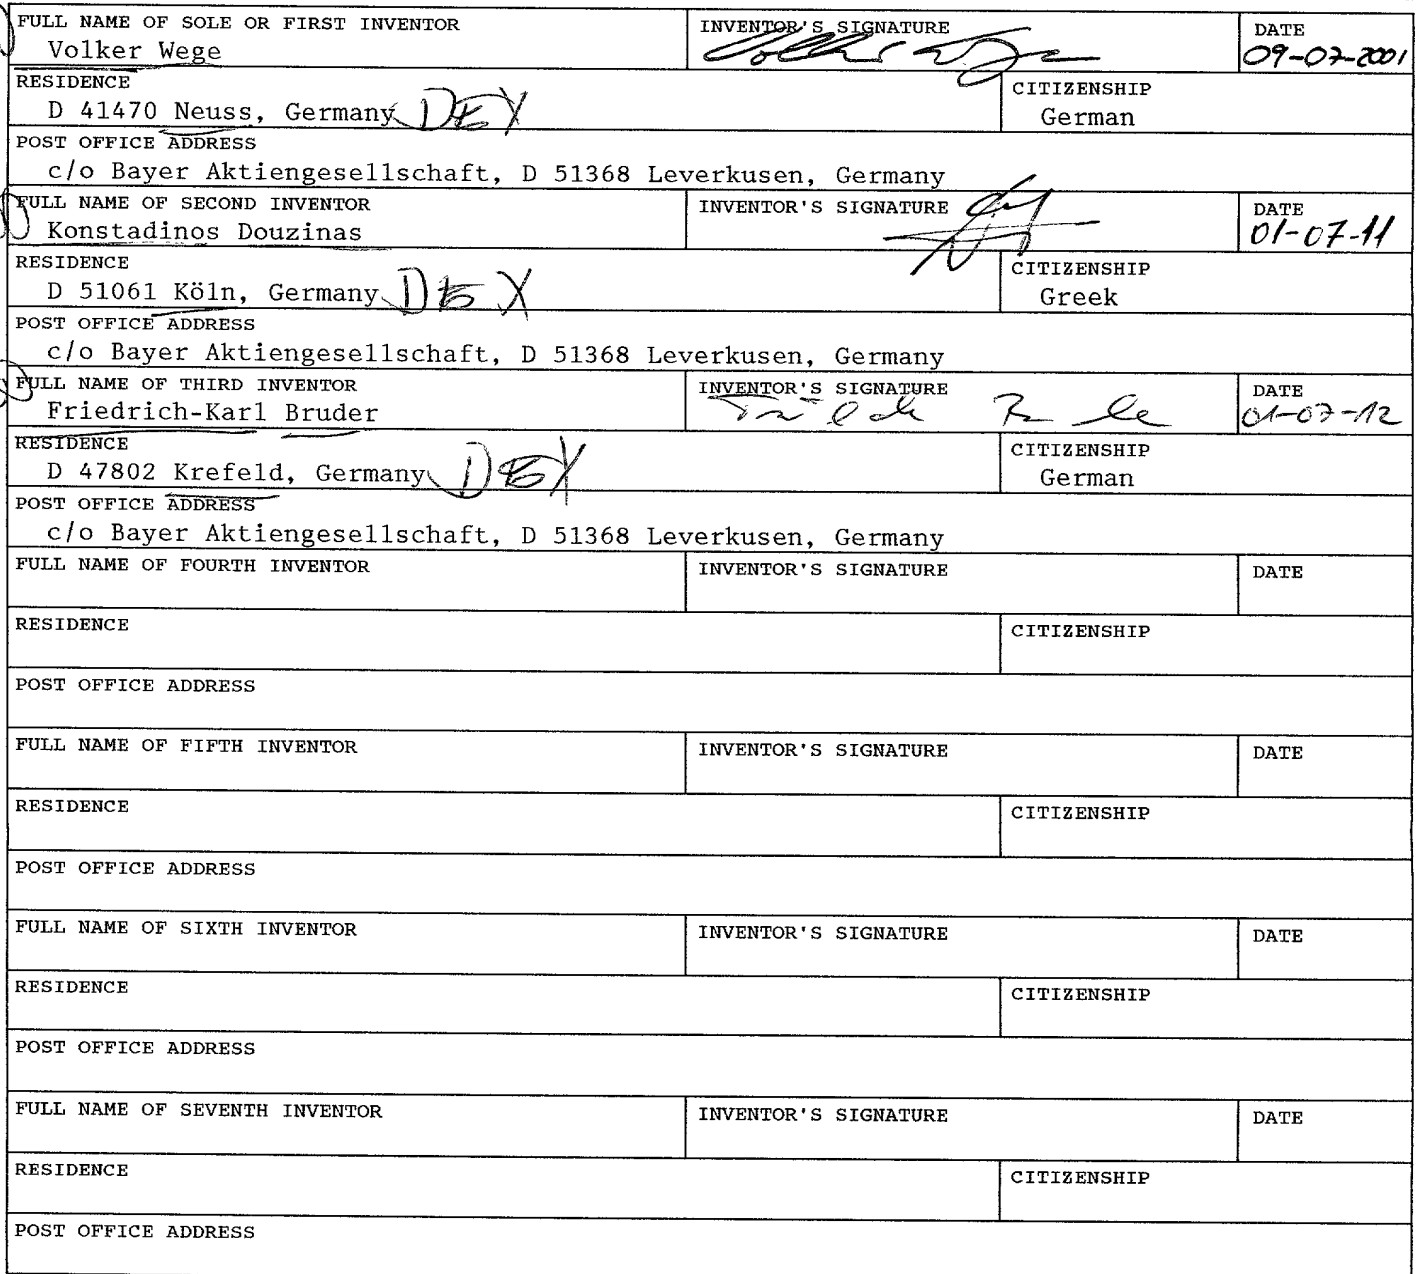 FULL NAME OF SOLE OR FIRST INVENTOR INVENTOR'S SIGNATURE DATE
Volker Wege 09-07-2001
RESIDENCE CITIZENSHIP
D 41470 Neuss, Germany DEX German
POST OFFICE ADDRESS
c/o Bayer Aktiengesellschaft, D 51368 Leverkusen, Germany
FULL NAME OF SECOND INVENTOR INVENTOR'S SIGNATURE DATE
Konstadinos Douzinas 01-07-11
RESIDENCE CITIZENSHIP
D 51061 Köln, Germany DEX Greek
POST OFFICE ADDRESS
c/o Bayer Aktiengesellschaft, D 51368 Leverkusen, Germany
FULL NAME OF THIRD INVENTOR INVENTOR'S SIGNATURE DATE
Friedrich-Karl Bruder 01-07-12
RESIDENCE CITIZENSHIP
D 47802 Krefeld, Germany DEX German
POST OFFICE ADDRESS
c/o Bayer Aktiengesellschaft, D 51368 Leverkusen, Germany
FULL NAME OF FOURTH INVENTOR INVENTOR'S SIGNATURE DATE
RESIDENCE CITIZENSHIP
POST OFFICE ADDRESS
FULL NAME OF FIFTH INVENTOR INVENTOR'S SIGNATURE DATE
RESIDENCE CITIZENSHIP
POST OFFICE ADDRESS
FULL NAME OF SIXTH INVENTOR INVENTOR'S SIGNATURE DATE
RESIDENCE CITIZENSHIP
POST OFFICE ADDRESS
FULL NAME OF SEVENTH INVENTOR INVENTOR'S SIGNATURE DATE
RESIDENCE CITIZENSHIP
POST OFFICE ADDRESS